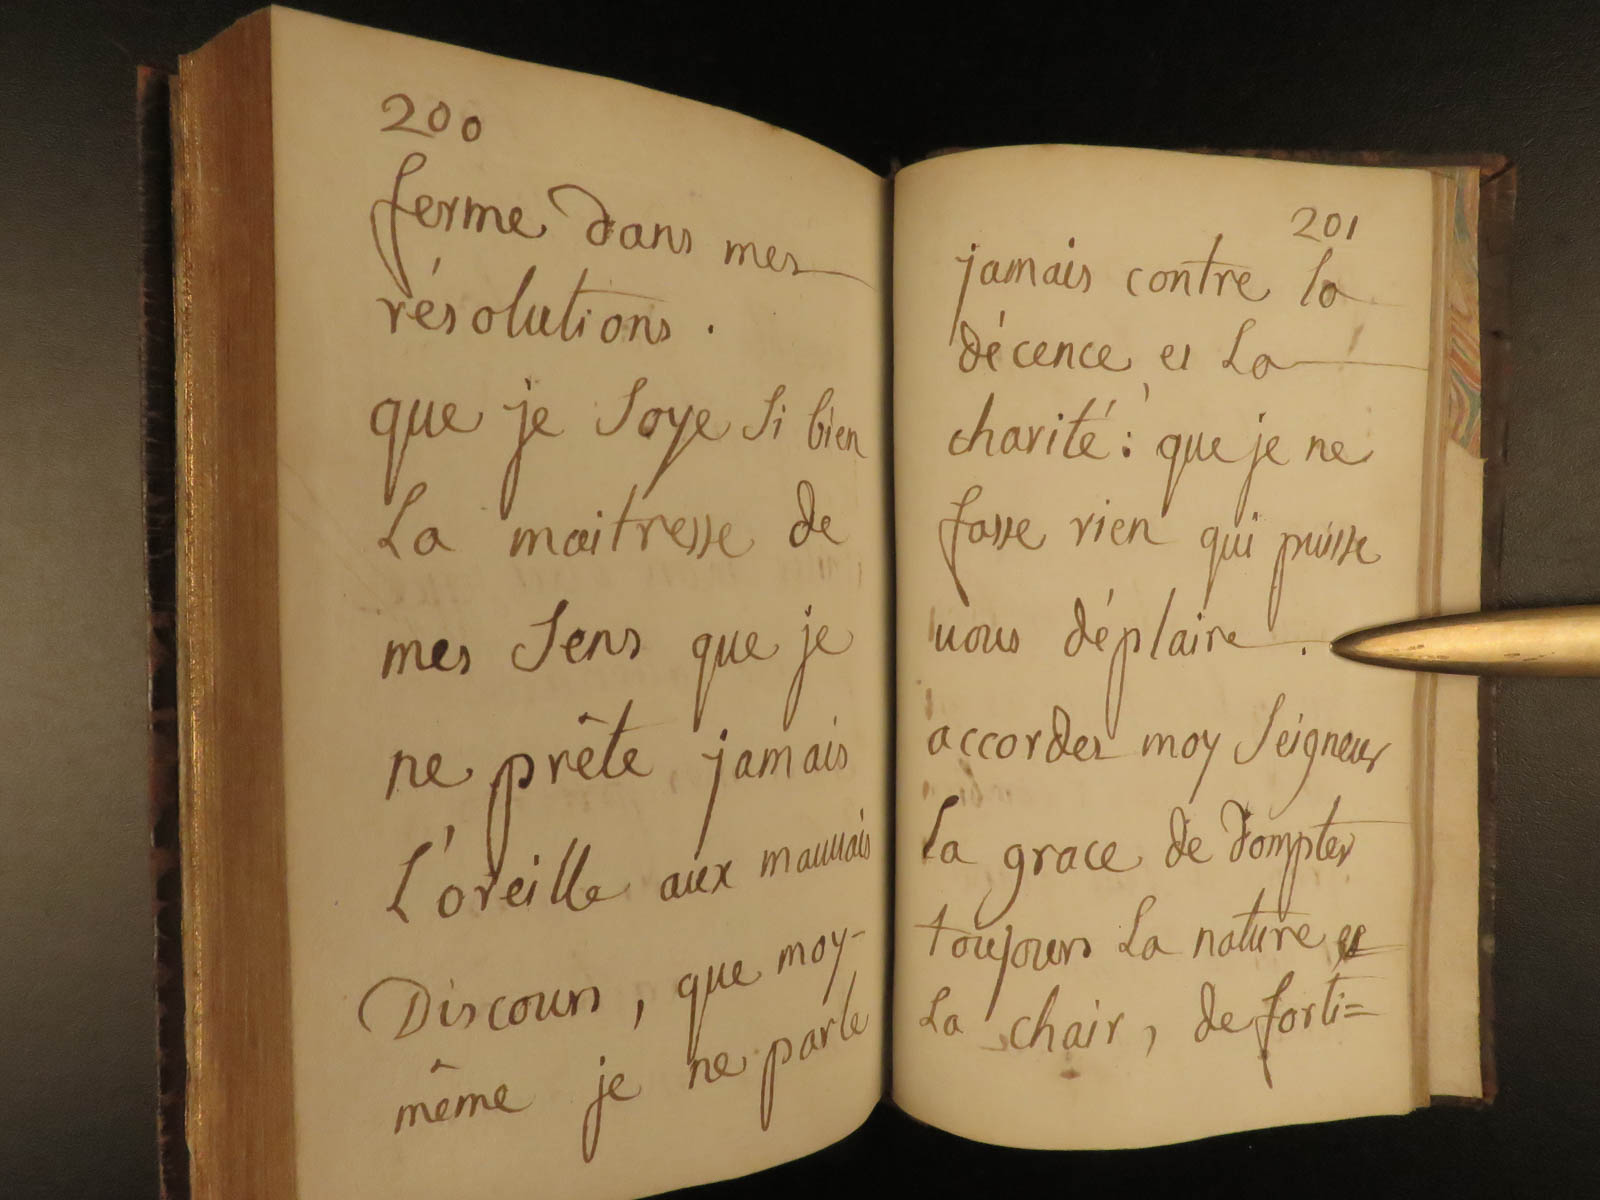 200
ferme dans mes
résolutions .
que je Soye Si bien
La maitresse de
mes Sens que je
ne prête jamais
L'oreille aux mauuais
Discours , que moy-
même je ne parle
201
jamais contre la
décence et La
charité : que je ne
fasse rien qui puisse
uous déplaire .
accordez moy Seigneur
La grace de dompter
toujours La nature et
La chair , de forti=